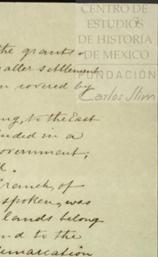 CENTRO DE
ESTUDIOS
DE HISTORIA
DE MEXICO
FUNDACIÓN
Carlos Slim
the grants.
after settlement
covered by
to the East
ended in a
overnment,
ranch, of
spoken, was
lands belong
and to the
emarcation